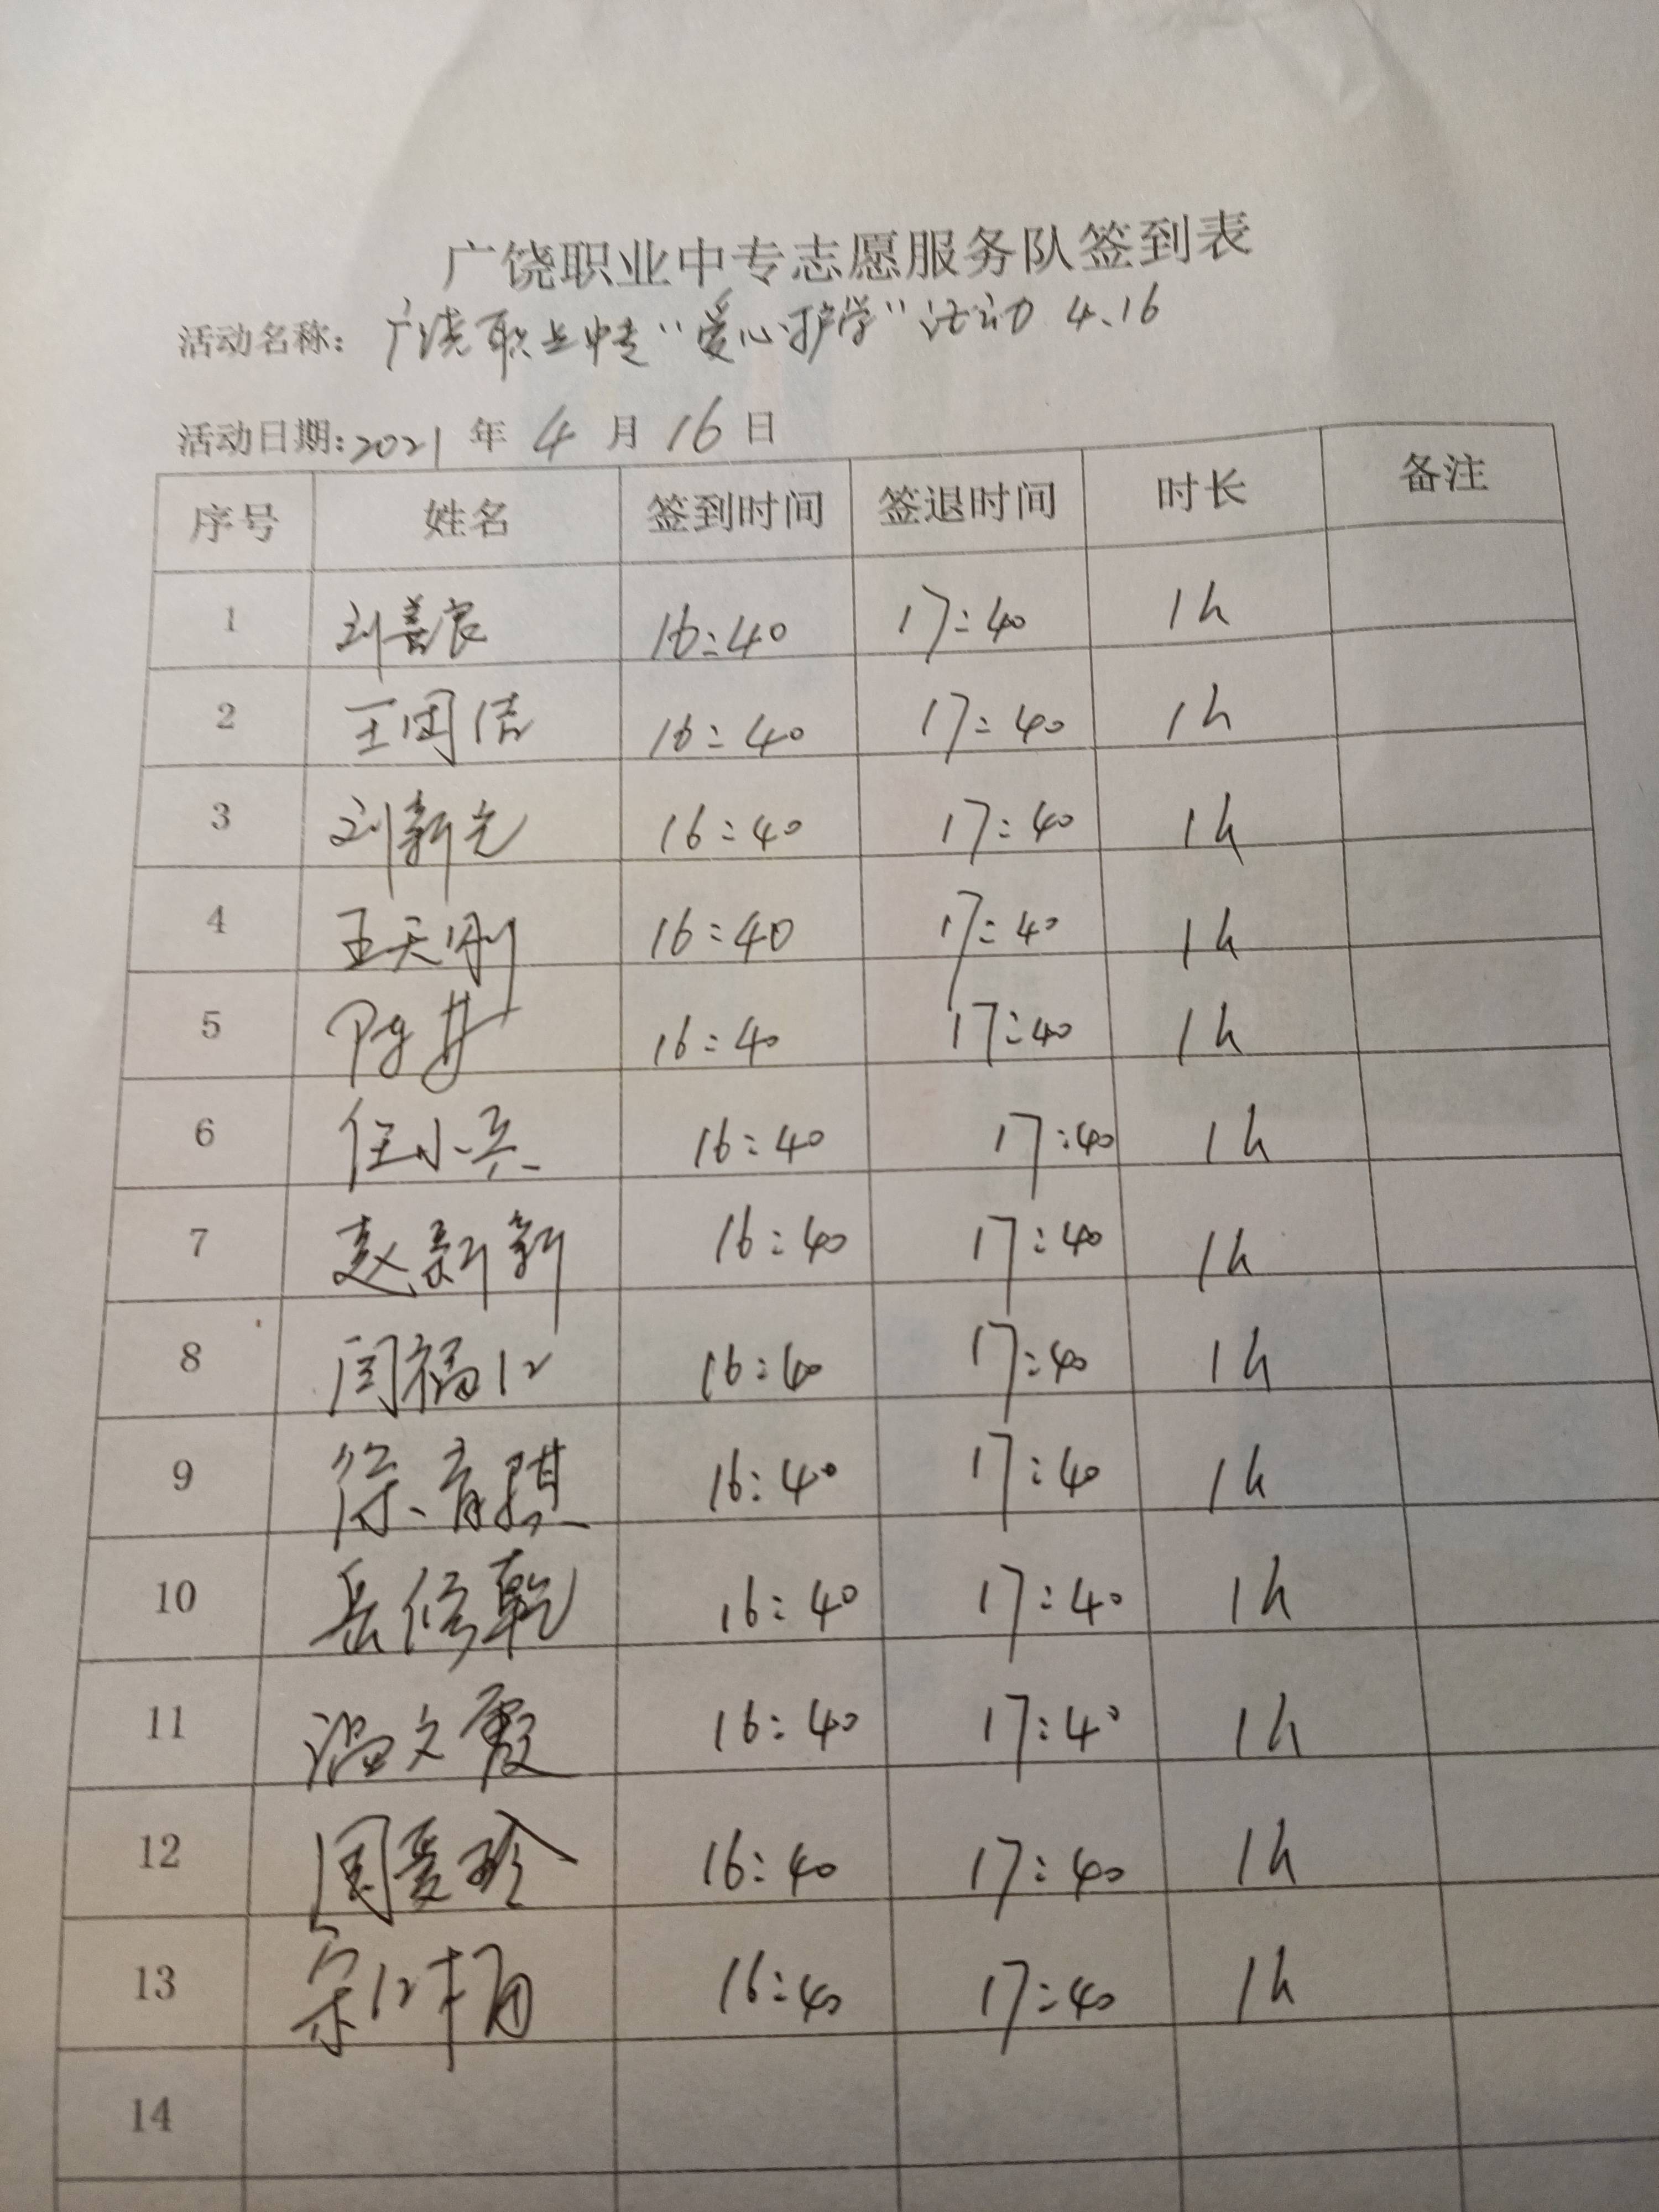 广饶职业中专志愿服务队签到表
活动名称：广饶职业中专“爱心护学”活动 4.16
活动日期：2021 年 4 月 16 日
序号 姓名 签到时间 签退时间 时长 备注
1 刘善良 16:40 17:40 1h
2 王国洁 16:40 17:40 1h
3 刘新光 16:40 17:40 1h
4 王天刚 16:40 17:40 1h
5 16:40 17:40 1h
6 任小兵 16:40 17:40 1h
7 赵新新 16:40 17:40 1h
8 闫福仁 16:40 17:40 1h
9 徐育琪 16:40 17:40 1h
10 岳修乾 16:40 17:40 1h
11 温文霞 16:40 17:40 1h
12 周爱珍 16:40 17:40 1h
13 16:40 17:40 1h
14